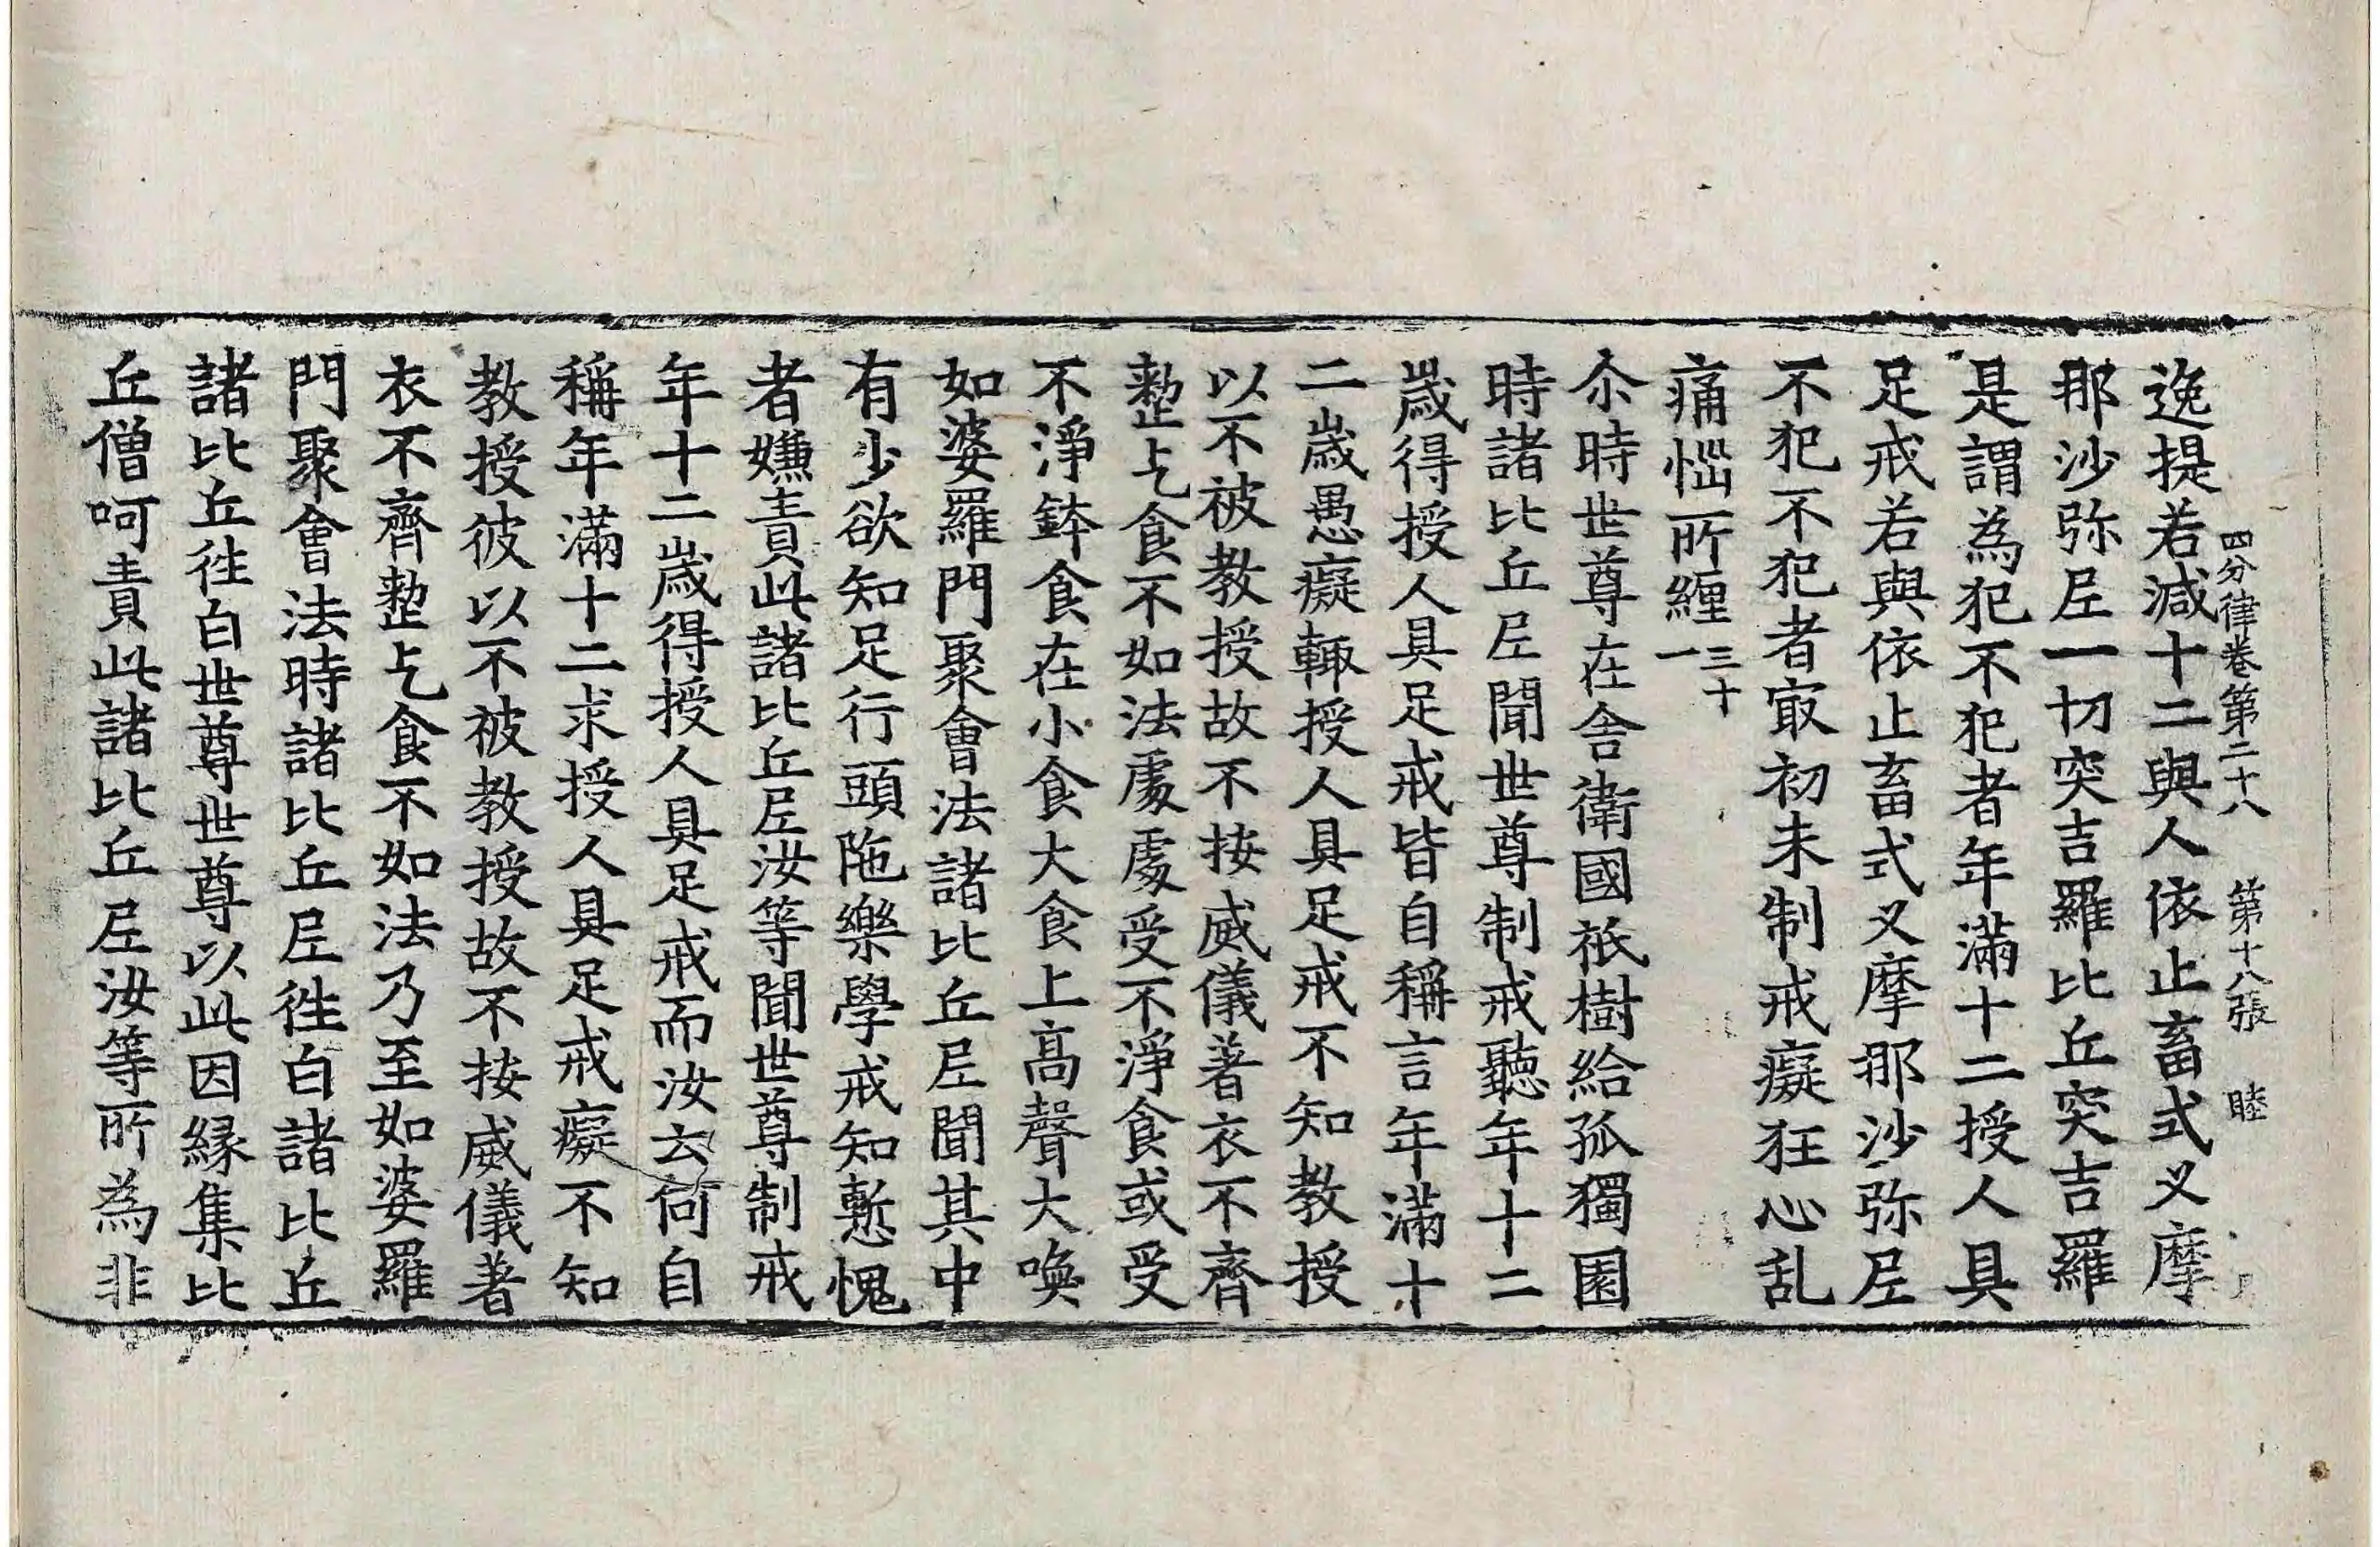 四分律卷第二十八 第十八張 睦
逸提若減十二與人依止畜式叉摩
那沙弥尼一切突吉羅比丘突吉羅
是謂為犯不犯者年滿十二授人具
足戒若與依止畜式叉摩那沙弥尼
不犯不犯者㝡初未制戒癡狂心乱
痛惱所纏三十一
尒時世尊在舍衛國祇樹給孤獨園
時諸比丘尼聞世尊制戒聽年十二
歲得授人具足戒皆自稱言年滿十
二歲愚癡輙授人具足戒不知教授
以不被教授故不按威儀著衣不齊
整乞食不如法處處受不淨食或受
不淨鉢食在小食大食上高聲大喚
如婆羅門聚會法諸比丘尼聞其中
有少欲知足行頭陁樂學戒知慙愧
者嫌責此諸比丘尼汝等聞世尊制戒
年十二歲得授人具足戒而汝云何自
稱年滿十二求授人具足戒癡不知
教授彼以不被教授故不按威儀著
衣不齊整乞食不如法乃至如婆羅
門聚會法時諸比丘尼徃白諸比丘
諸比丘徃白世尊世尊以此因緣集比
丘僧呵責此諸比丘尼汝等所為非